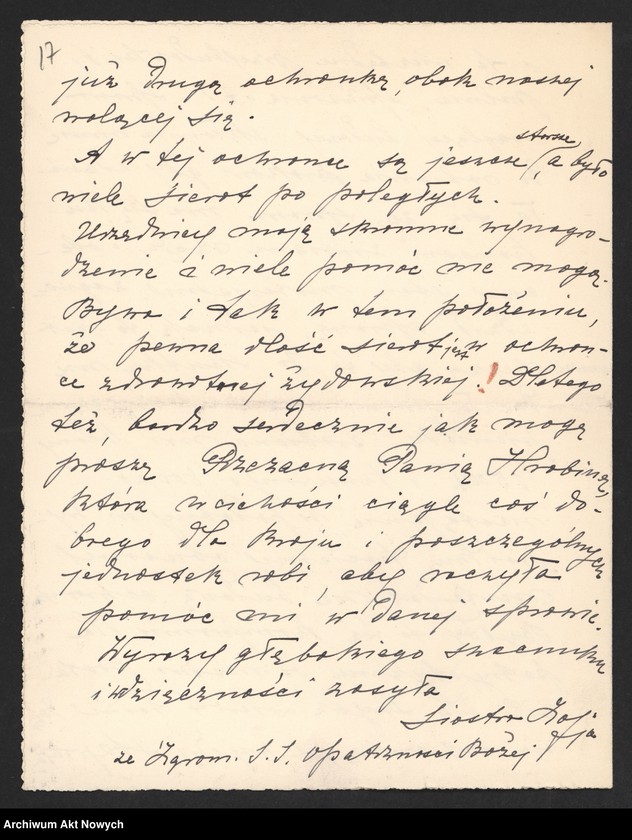 17
już drugą ochronkę, obok naszej
walącej się.
A w tej ochronce są jeszcze starsze, a było
wiele sierot po poległych.
Urzędnicy mają skromne wynagro-
dzenie i wiele pomóc nie mogą.
Bywa i tak w tem położeniu,
że pewna ilość sierot jest w ochron-
ce zdrowotnej żydowskiej! Dlatego
też, bardzo serdecznie jak mogę
proszę Przezacną Panią Hrabinę,
która w cichości ciągle coś do-
brego dla kraju i poszczególnych
jednostek robi, aby raczyła
pomóc mi w danej sprawie.
Wyrazy głębokiego szacunku
i wdzięczności zasyła
Siostra Zofja
ze Zgrom. S.S. Opatrzności Bożej
Archiwum Akt Nowych